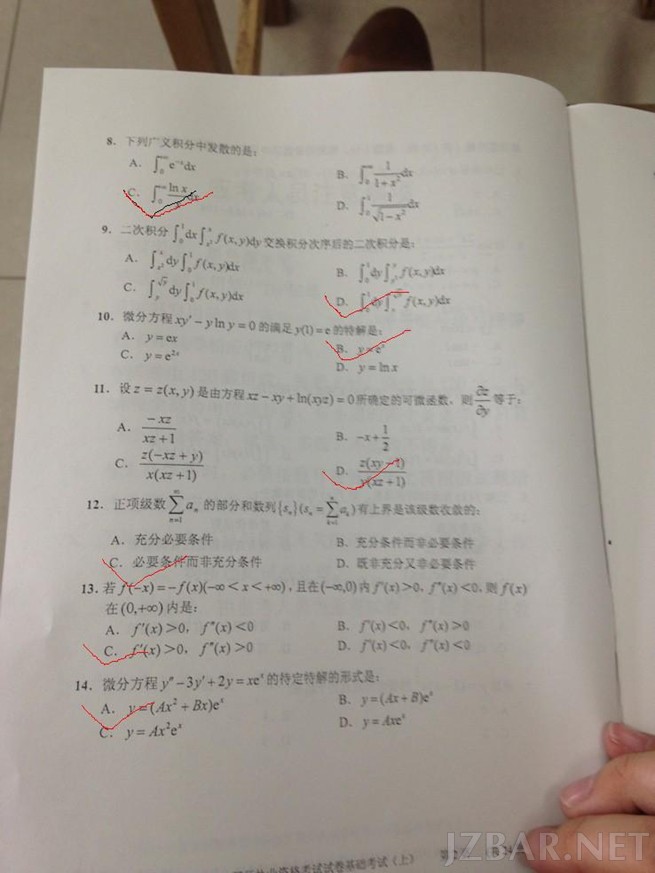 8. 下列广义积分中发散的是:
A. ∫₀^{+∞} e⁻ˣdx B. ∫₀^{+∞} 1/(1+x²) dx
C. ∫₀^{+∞} ln x/x dx D. ∫₀¹ 1/√(1-x²) dx
9. 二次积分 ∫₀¹dx∫_{x²}^{x} f(x,y)dy 交换积分次序后的二次积分是:
A. ∫_{x²}^{x} dy∫₀¹ f(x,y)dx B. ∫₀¹dy∫_{y²}^{y} f(x,y)dx
C. ∫_{y}^{√y} dy∫₀¹ f(x,y)dx D. ∫₀¹dy∫_{y}^{√y} f(x,y)dx
10. 微分方程 xy′-y ln y=0 的满足 y(1)=e 的特解是:
A. y=ex B. y=eˣ
C. y=e²ˣ D. y=ln x
11. 设 z=z(x,y) 是由方程 xz-xy+ln(xyz)=0 所确定的可微函数, 则 ∂z/∂y 等于:
A. -xz/(xz+1) B. -x+1/2
C. z(-xz+y)/(x(xz+1)) D. z(xy-1)/(y(xz+1))
12. 正项级数 ∑_{n=1}^{∞} aₙ 的部分和数列{sₙ}(sₙ=∑_{k=1}^{n} aₖ)有上界是该级数收敛的:
A. 充分必要条件 B. 充分条件而非必要条件
C. 必要条件而非充分条件 D. 既非充分又非必要条件
13. 若 f(-x)=-f(x)(-∞<x<+∞), 且在(-∞,0)内 f′(x)>0, f″(x)<0, 则 f(x)
在(0,+∞)内是:
A. f′(x)>0, f″(x)<0 B. f′(x)<0, f″(x)>0
C. f′(x)>0, f″(x)>0 D. f′(x)<0, f″(x)<0
14. 微分方程 y″-3y′+2y=xeˣ 的特定特解的形式是:
A. y=(Ax²+Bx)eˣ B. y=(Ax+B)eˣ
C. y=Ax²eˣ D. y=Axeˣ
执业资格考试试卷基础考试(上) 第2
JZBAR.NET